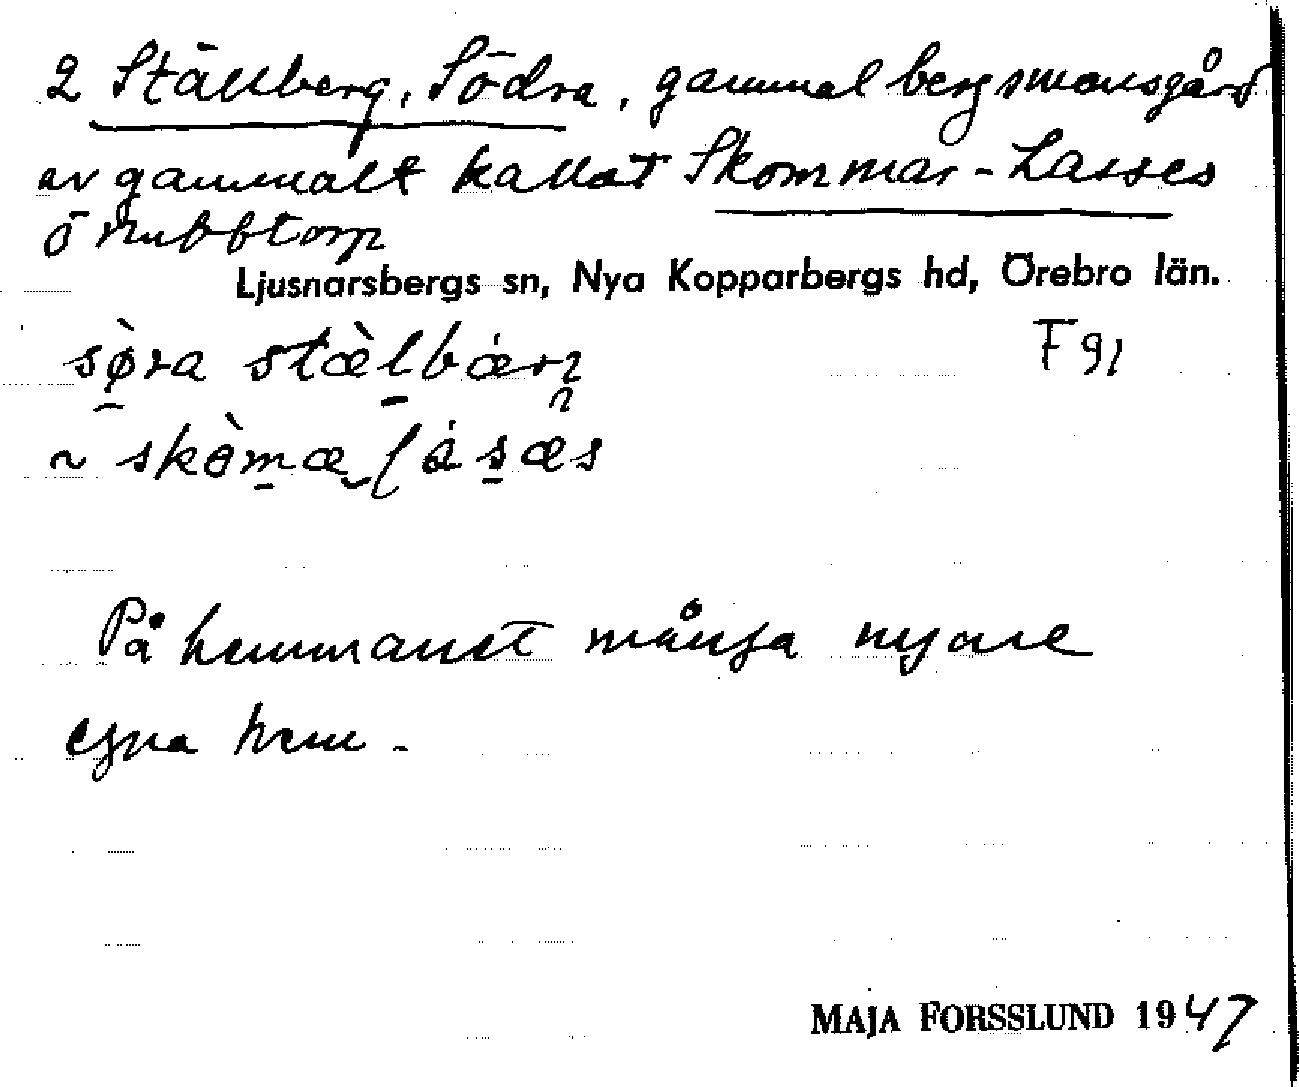 2 Ställberg, Södra, gammal bergsmansgård
av gammalt kallat Skommar-Lasses
ö nubbtorp
Ljusnarsbergs sn, Nya Kopparbergs hd, Örebro län.
sø̀ra stæ̀lbærŋ F91
~ skòmæ lásæs
På hemmanet många nyare
egna hem -
MAJA FORSSLUND 1947